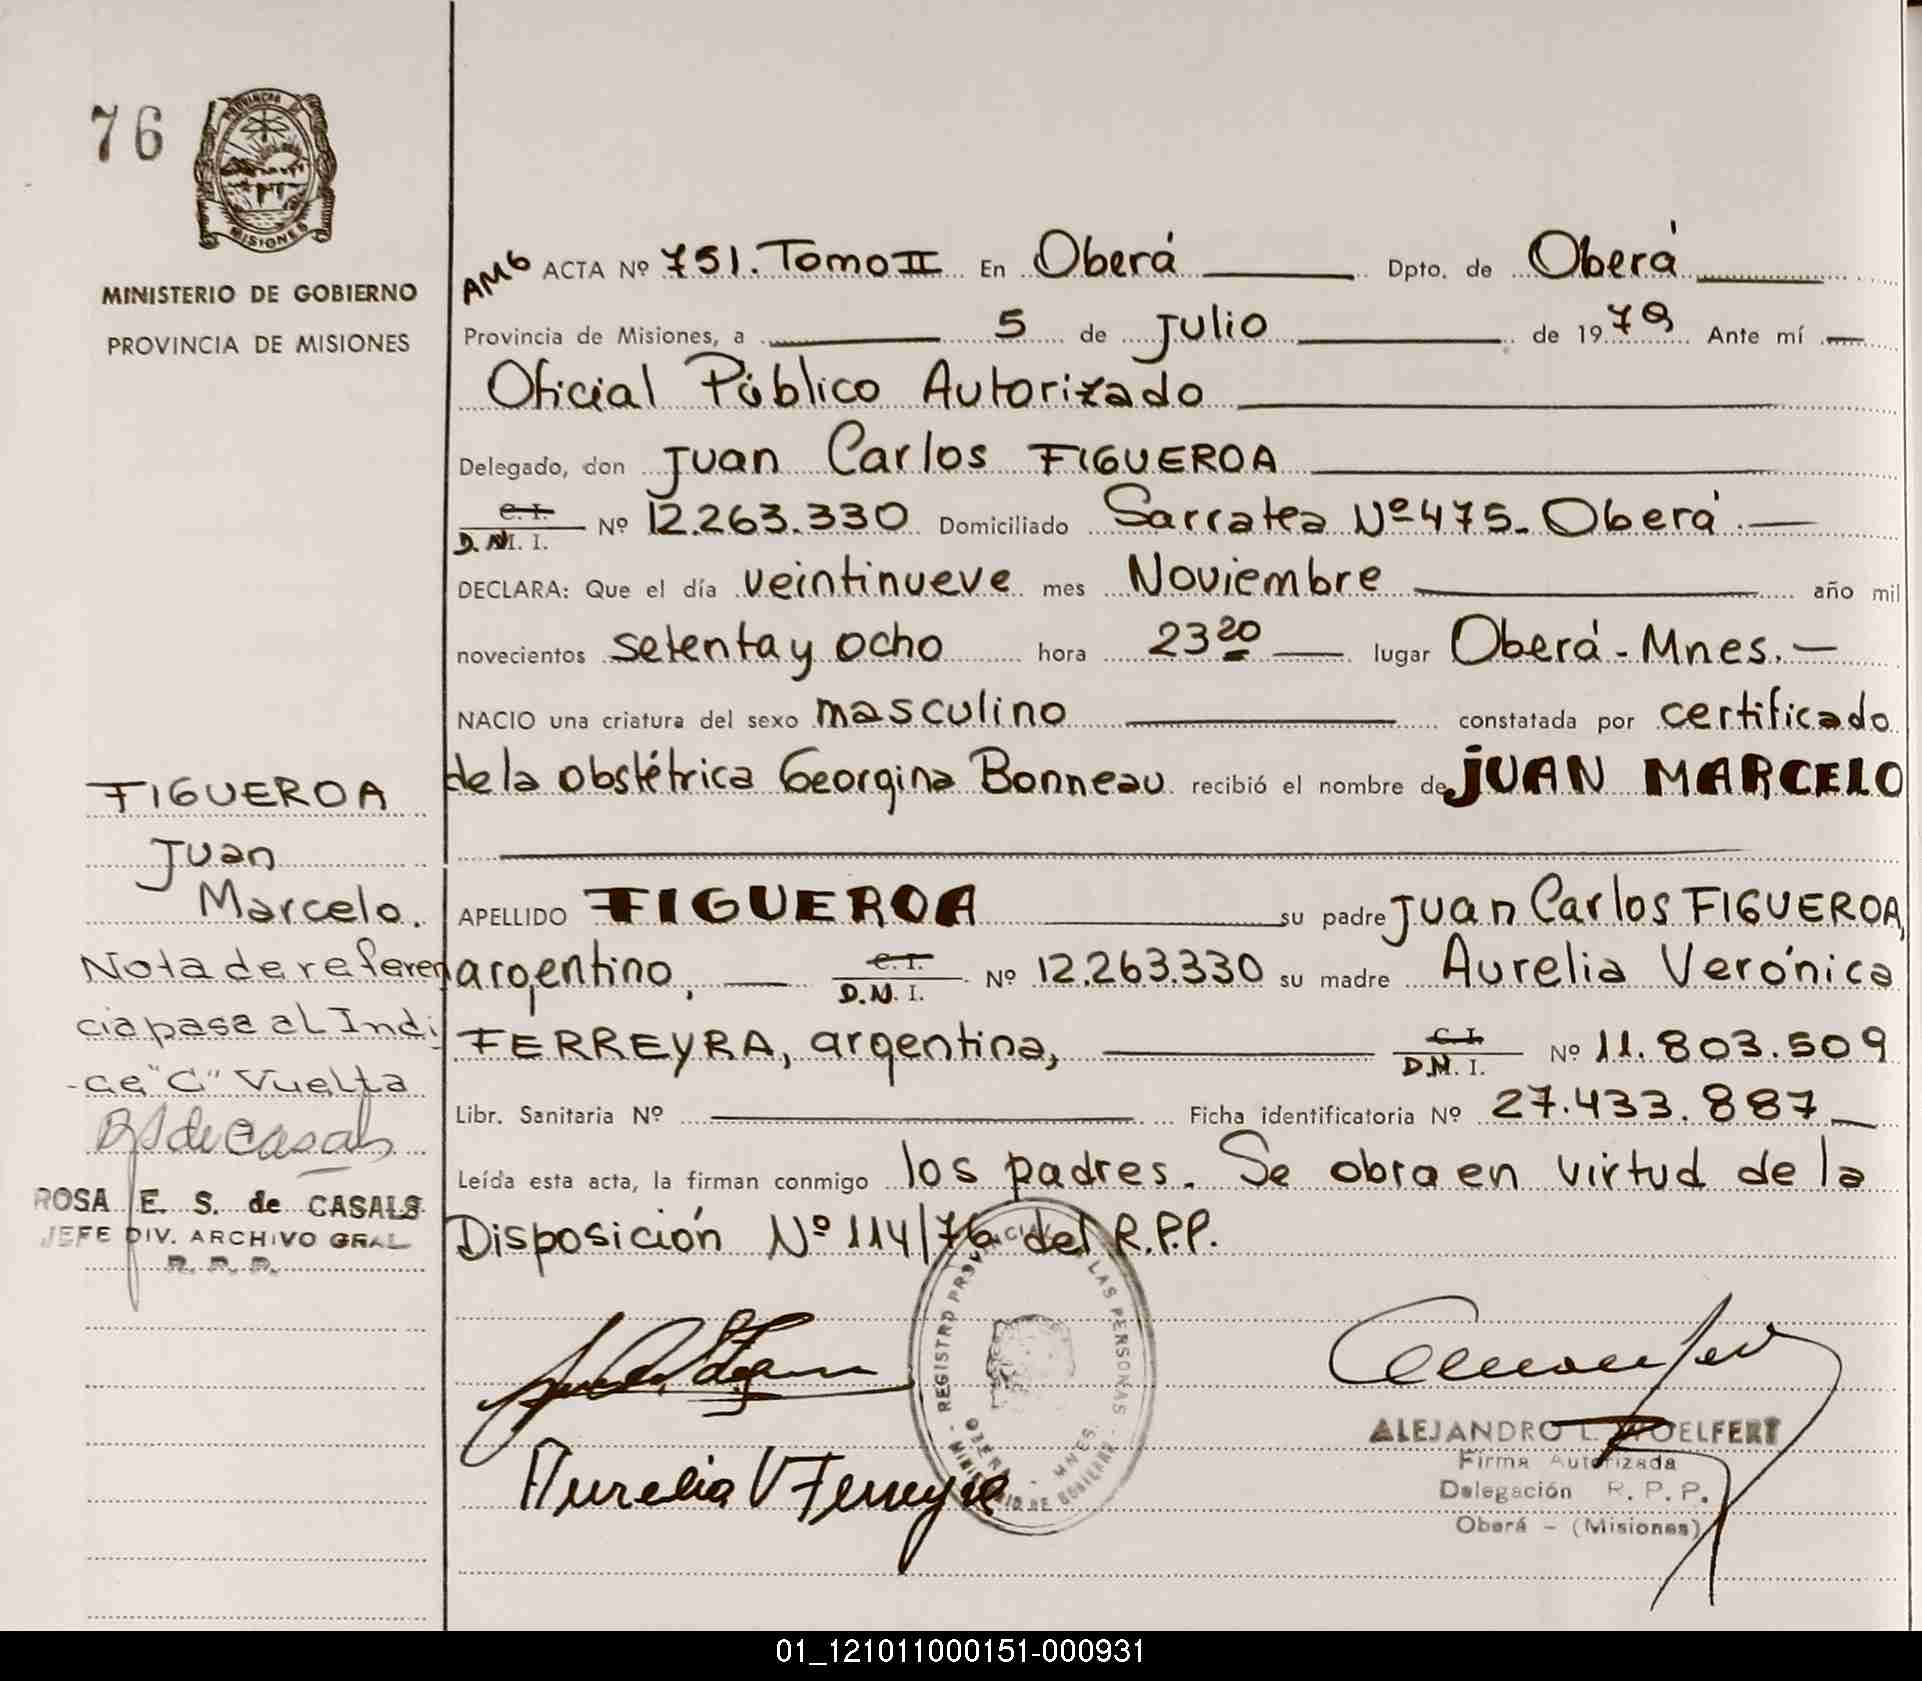 76
PROVINCIA DE
MISIONES
MINISTERIO DE GOBIERNO
PROVINCIA DE MISIONES
AMG ACTA Nº 751. Tomo II En Oberá Dpto. de Oberá
Provincia de Misiones, a 5 de Julio de 1979 Ante mí
Oficial Público Autorizado
Delegado, don Juan Carlos FIGUEROA
C. I.
D.N.I. Nº 12.263.330 Domiciliado Sarratea Nº 475- Oberá.
DECLARA: Que el día veintinueve mes Noviembre año mil
novecientos setenta y ocho hora 23 20 lugar Oberá - Mnes.
NACIO una criatura del sexo masculino constatada por certificado
de la obstétrica Georgina Bonneau recibió el nombre de JUAN MARCELO
APELLIDO FIGUEROA su padre Juan Carlos FIGUEROA,
argentino, C. I. D.N.I. Nº 12.263.330 su madre Aurelia Verónica
FERREYRA, argentina, C. I. D.N.I. Nº 11.803.509
Libr. Sanitaria Nº Ficha identificatoria Nº 27.433.887
Leída esta acta, la firman conmigo los padres. Se obra en virtud de la
Disposición Nº 114/76 del R.P.P.
FIGUEROA
Juan
Marcelo.
Nota de referen
cia pasa al Indi
-ce "C" Vuelta
RSdeCasals
ROSA E. S. de CASALS
JEFE DIV. ARCHIVO GRAL
R. P. P.
REGISTRO PROVINCIAL DE LAS PERSONAS
MINISTERIO DE GOBIERNO
OBERA - MNES.
Aurelia V Ferreyra
ALEJANDRO L. WOELFERT
Firma Autorizada
Delegación R. P. P.
Oberá - (Misiones)
01_121011000151-000931